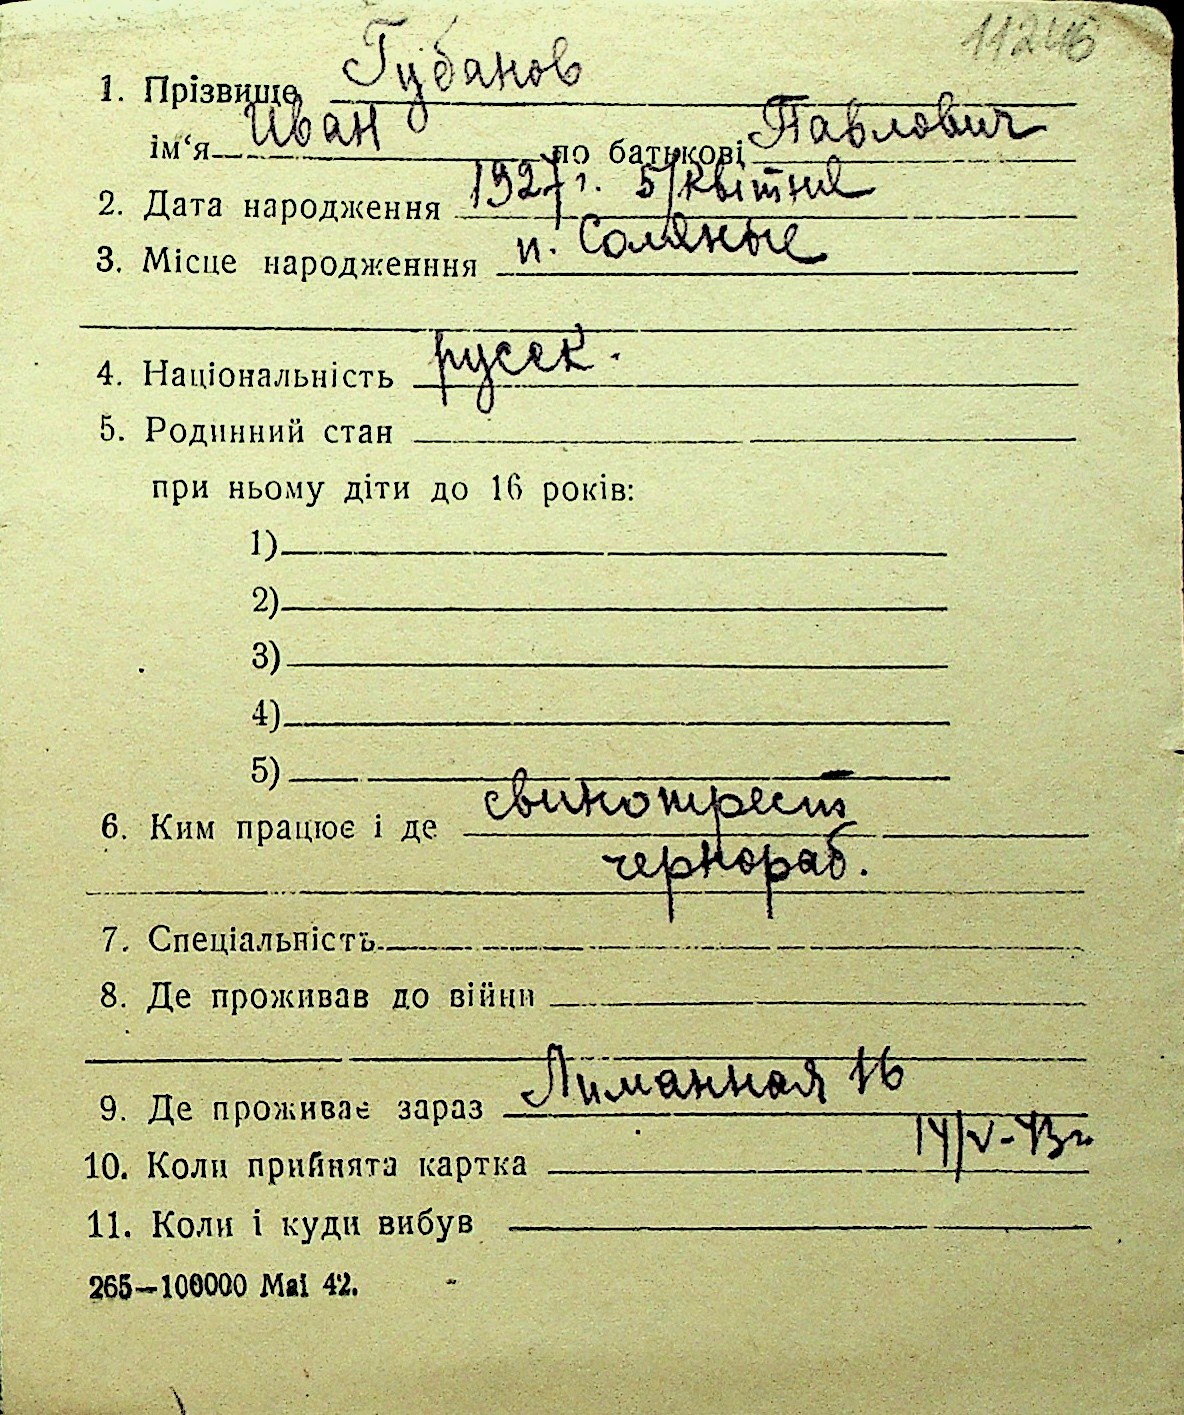 11246
1. Прізвище Губанов
ім‘я Иван по батькові Павлович
2. Дата народження 1927 г. 5/квітня
3. Місце народженння п. Соляные
4. Національність русск.
5. Родинний стан
при ньому діти до 16 років:
1)
2)
3)
4)
5)
6. Ким працює і де свинотрест
чернораб.
7. Спеціальність
8. Де проживав до війни
9. Де проживає зараз Лиманная 16
10. Коли прийнята картка 14/V-43 г.
11. Коли і куди вибув
265—100000 Mai 42.